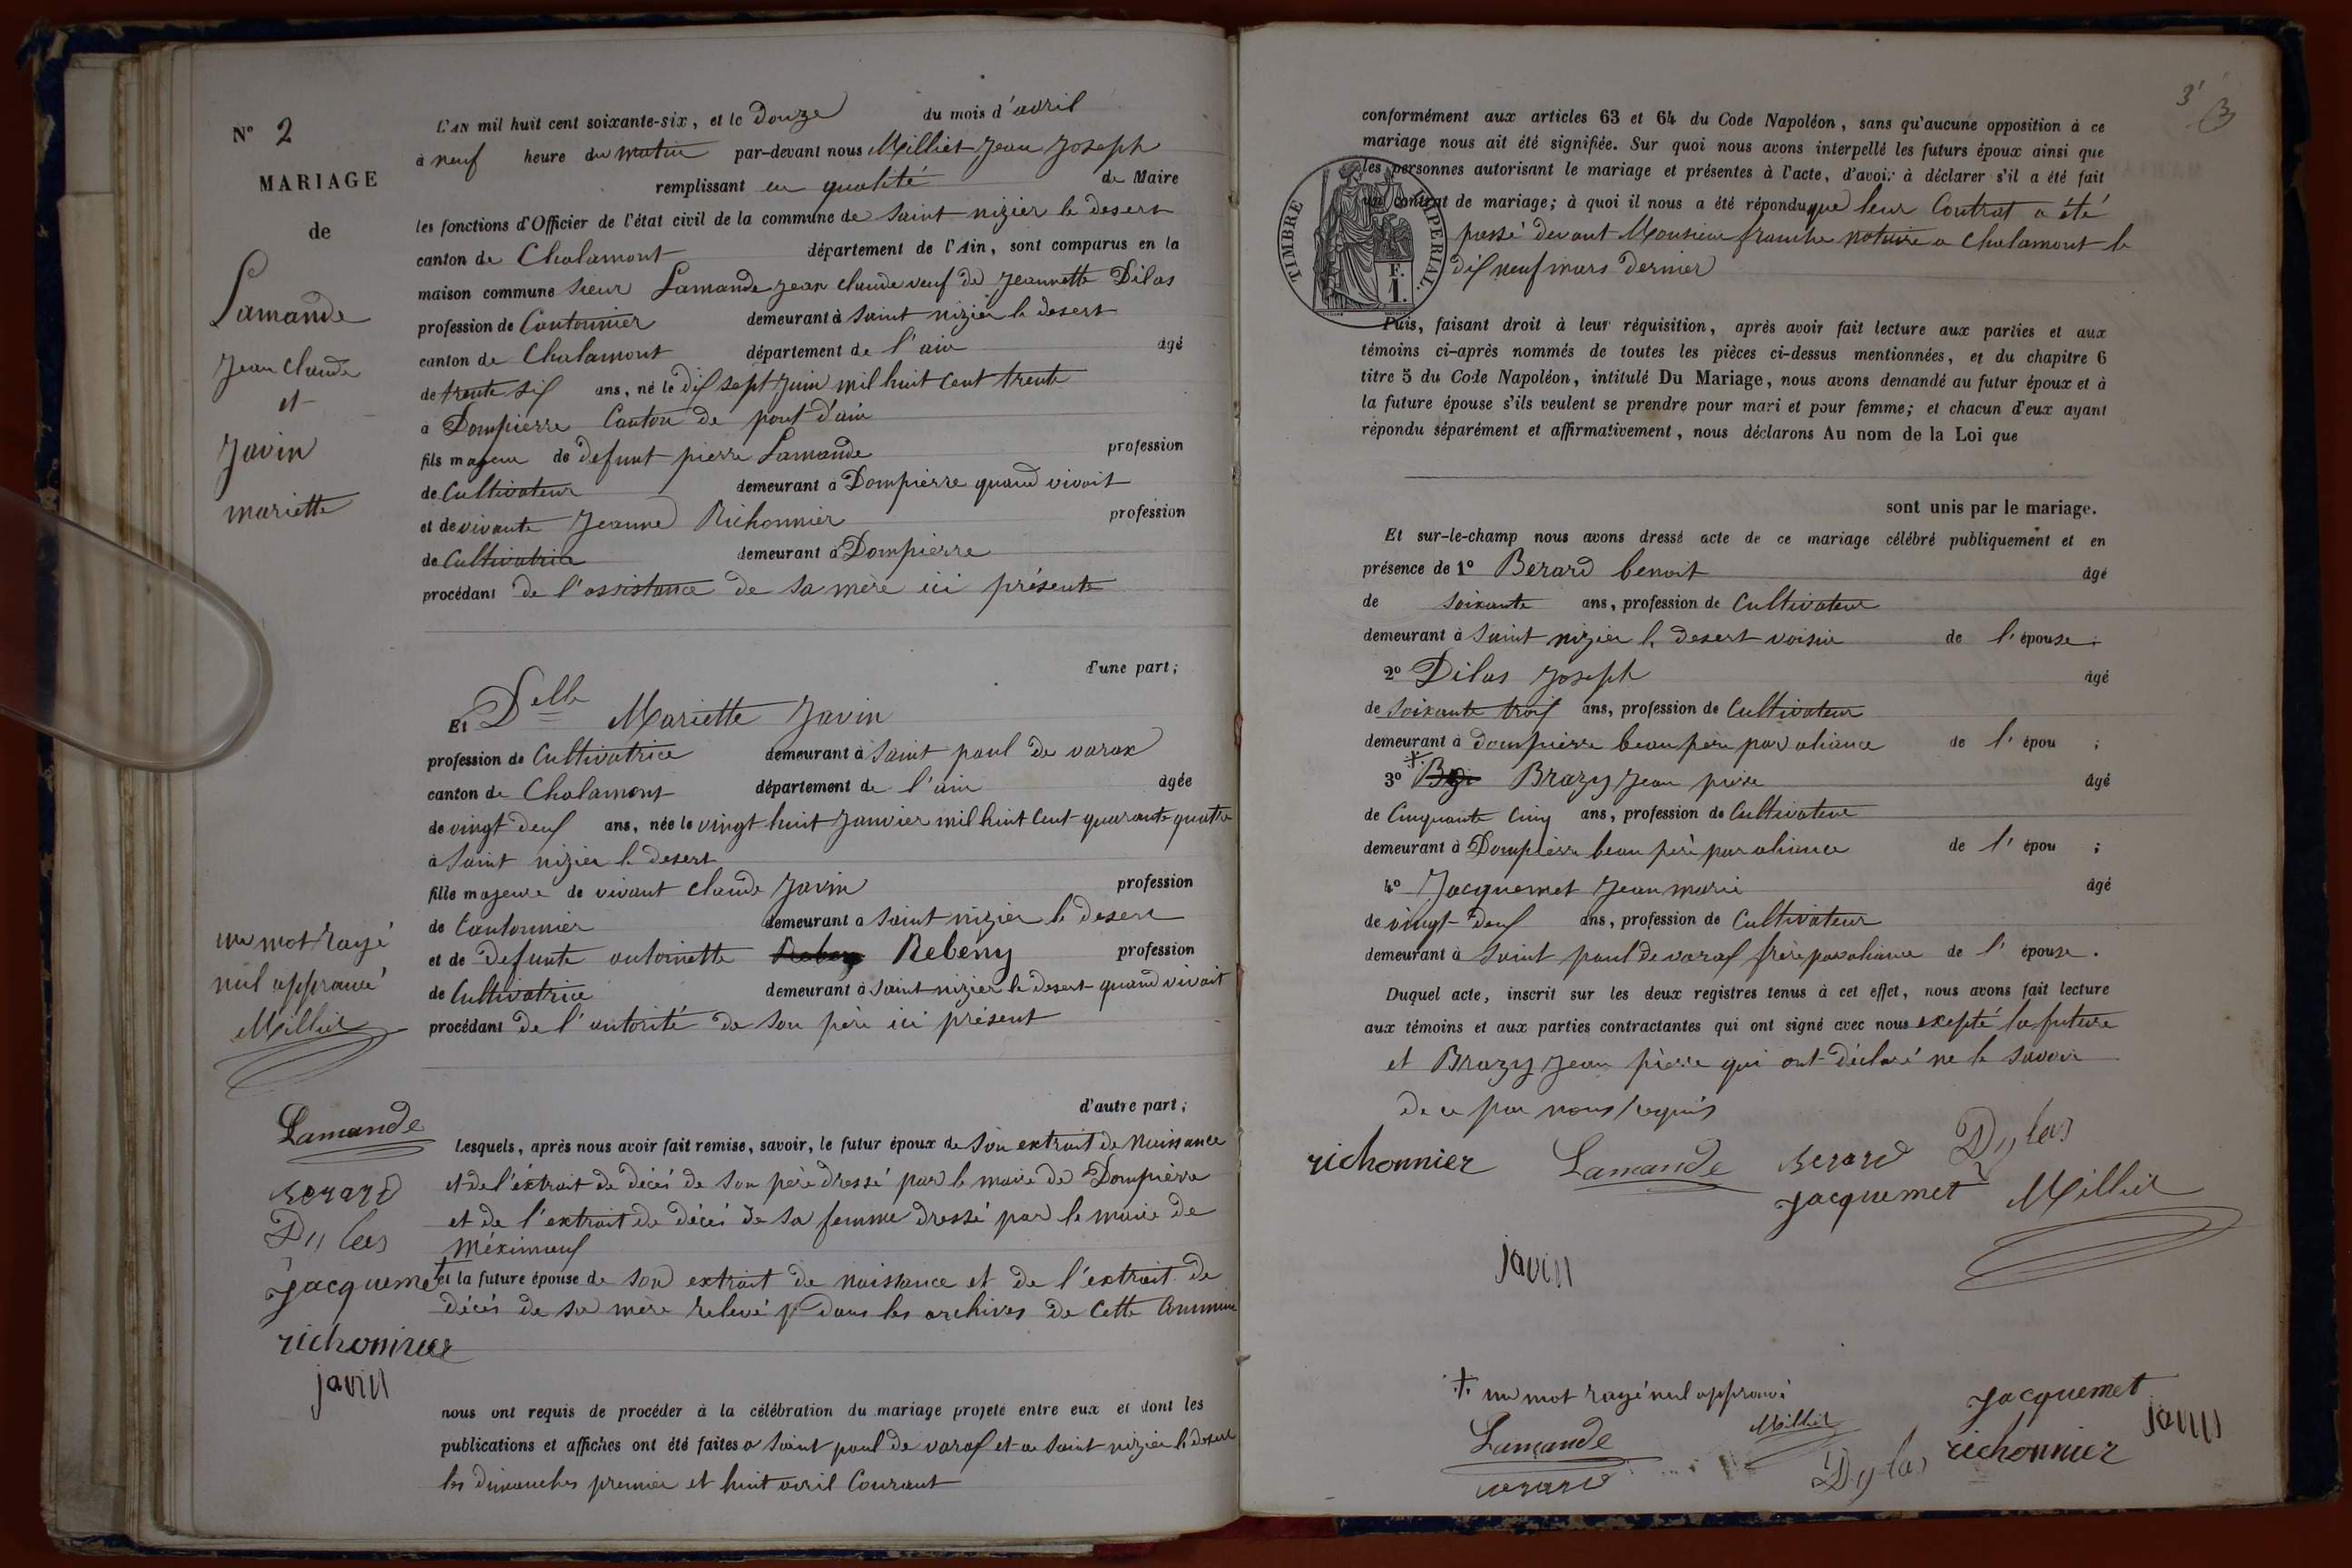 N° 2
MARIAGE
de
Lamande
Jean Claude
et
Javin
mariette
L'AN mil huit cent soixante-six, et le Douze du mois d'avril
à neuf heure du matin par-devant nous Milliet Jean Joseph
remplissant en qualité de Maire
les fonctions d'Officier de l'état civil de la commune de Saint nizier le desert
canton de Chalamont département de l'Ain, sont comparus en la
maison commune sieur Lamande jean claude veuf de Jeannette Dilas
profession de Cantonnier demeurant à Saint nizier le desert
canton de Chalamont département de l'ain âgé
de trente six ans, né le dix sept Juin mil huit cent trente
a Dompierre Canton de pont d'ain
fils majeur de defunt pierre Lamande profession
de Cultivateur demeurant à Dompierre quand vivait
et de vivante Jeanne Richonnier profession
de Cultivatrice demeurant à Dompierre
procédant de l'assistance de sa mère ici présente
d'une part;
Et Delle Mariette Javin
profession de Cultivatrice demeurant à Saint paul de varax
canton de Chalamont département de l'ain âgée
de vingt deux ans, née le vingt huit Janvier mil huit cent quarante quatre
à Saint nizier le desert
fille majeure de vivant claude Javin profession
de Cantonnier demeurant a Saint nizier le desert
et de defunte antoinette Rebeny profession
de Cultivatrice demeurant à Saint nizier le desert quand vivait
procédant de l'autorité de son père ici présent
d'autre part;
un mot rayé
nul approuvé
Milliet
Lamande
Berard
Dylas
Jacquemet
richonnier
javin
Lesquels, après nous avoir fait remise, savoir, le futur époux de son extrait de Naissance
et de l'extrait de décés de son père dressé par le maire de Dompierre
et de l'extrait de décés de sa femme dressé par le maire de
Méximieux
et la future épouse de son extrait de naissance et de l'extrait de
décés de sa mère relevé dans les archives de cette Commune
nous ont requis de procéder à la célébration du mariage projeté entre eux et dont les
publications et affiches ont été faites a Saint paul de varax et a Saint nizier le desert
les dimanches premier et huit avril Courant
3
conformément aux articles 63 et 64 du Code Napoléon, sans qu'aucune opposition à ce
mariage nous ait été signifiée. Sur quoi nous avons interpellé les futurs époux ainsi que
les personnes autorisant le mariage et présentes à l'acte, d'avoir à déclarer s'il a été fait
un contrat de mariage; à quoi il nous a été répondu que leur Contrat a été
passé devant Monsieur franche notaire a Chalamont le
dix neuf mars dernier
TIMBRE IMPERIAL.
F.
1.
Puis, faisant droit à leur réquisition, après avoir fait lecture aux parties et aux
témoins ci-après nommés de toutes les pièces ci-dessus mentionnées, et du chapitre 6
titre 5 du Code Napoléon, intitulé Du Mariage, nous avons demandé au futur époux et à
la future épouse s'ils veulent se prendre pour mari et pour femme; et chacun d'eux ayant
répondu séparément et affirmativement, nous déclarons Au nom de la Loi que
sont unis par le mariage.
Et sur-le-champ nous avons dressé acte de ce mariage célébré publiquement et en
présence de 1° Berard benoit âgé
de soixante ans, profession de Cultivateur
demeurant à Saint nizier le desert voisin de l'épouse;
2° Dilas Joseph âgé
de soixante trois ans, profession de Cultivateur
demeurant à dompierre beau père par aliance de l'épou ;
3° Brazy Jean pierre âgé
de Cinquante Cinq ans, profession de Cultivateur
demeurant à Dompierre beau père par aliance de l'épou ;
4° Jacquemet Jean marie âgé
de vingt deux ans, profession de Cultivateur
demeurant à Saint paul de varax frère par aliance de l'épouse.
Duquel acte, inscrit sur les deux registres tenus à cet effet, nous avons fait lecture
aux témoins et aux parties contractantes qui ont signé avec nous excepté la future
et Brazy Jean pierre qui ont déclaré ne le savoir
de ce par nous requis
richonnier Lamande Berard Dylas
Jacquemet Milliet
javin
un mot rayé nul approuvé
Milliet
Jacquemet
Lamande
javin
richonnier
Berard
Dylas